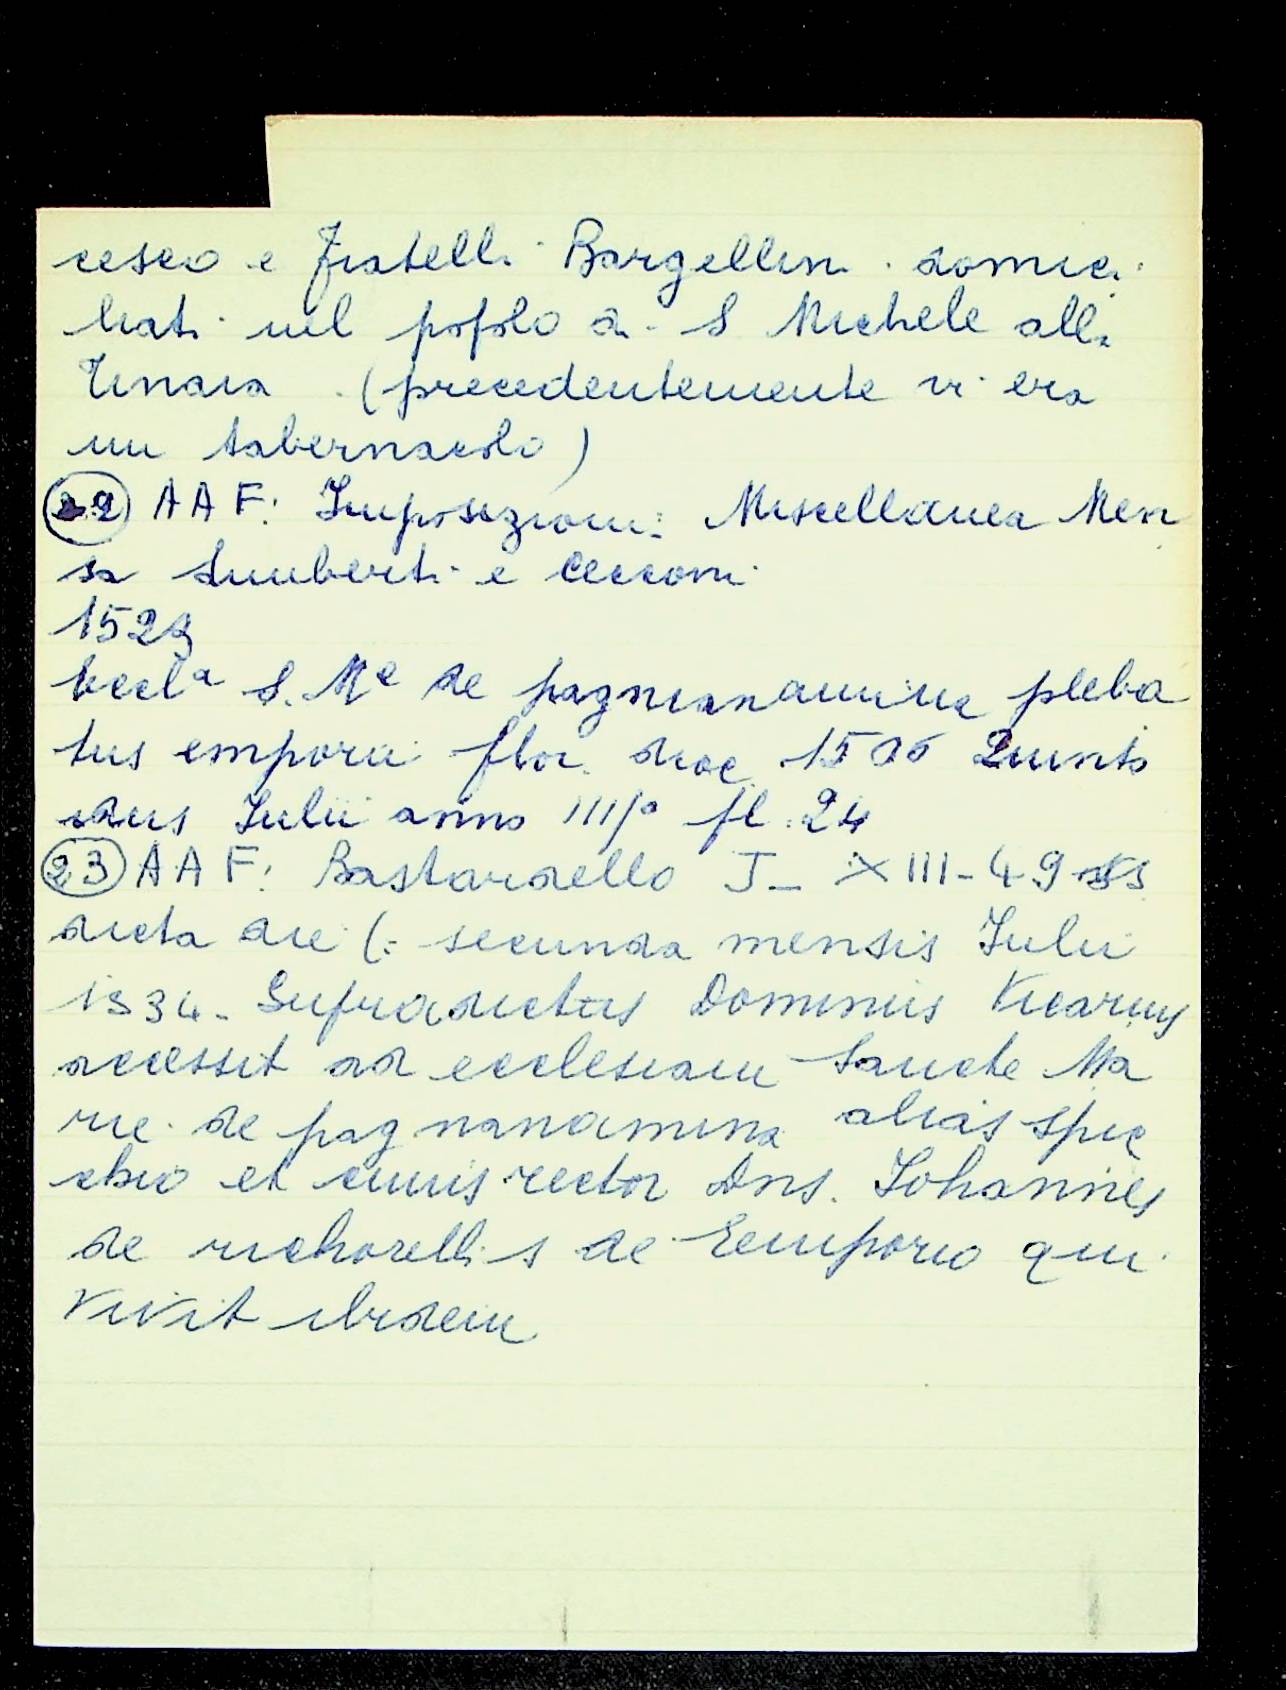 cesco e Fratelli Bargellini domici
liati nel popolo di S Michele alla
Tinaia (precedentemente vi era
un tabernacolo)
22 AAF: Imposizioni: Miscellanea Men
sa Limberti e Cecconi
1523
Eccla S. Me de pagnianamina pleba
tus emporii flor. dioc. 1506 Quinto
idus Iulii anno IIIIo fl. 24
23 AAF: Bastardello J- XIII-49
dicta die (: secunda mensis Iulii
1534- Supradictus Dominus Vicarius
accessit ad ecclesiam Sancte Ma
rie de pagnanamina alias spic
chio et cuius rector Dns. Johannes
de richorellis de Emporio qui
vivit ibidem